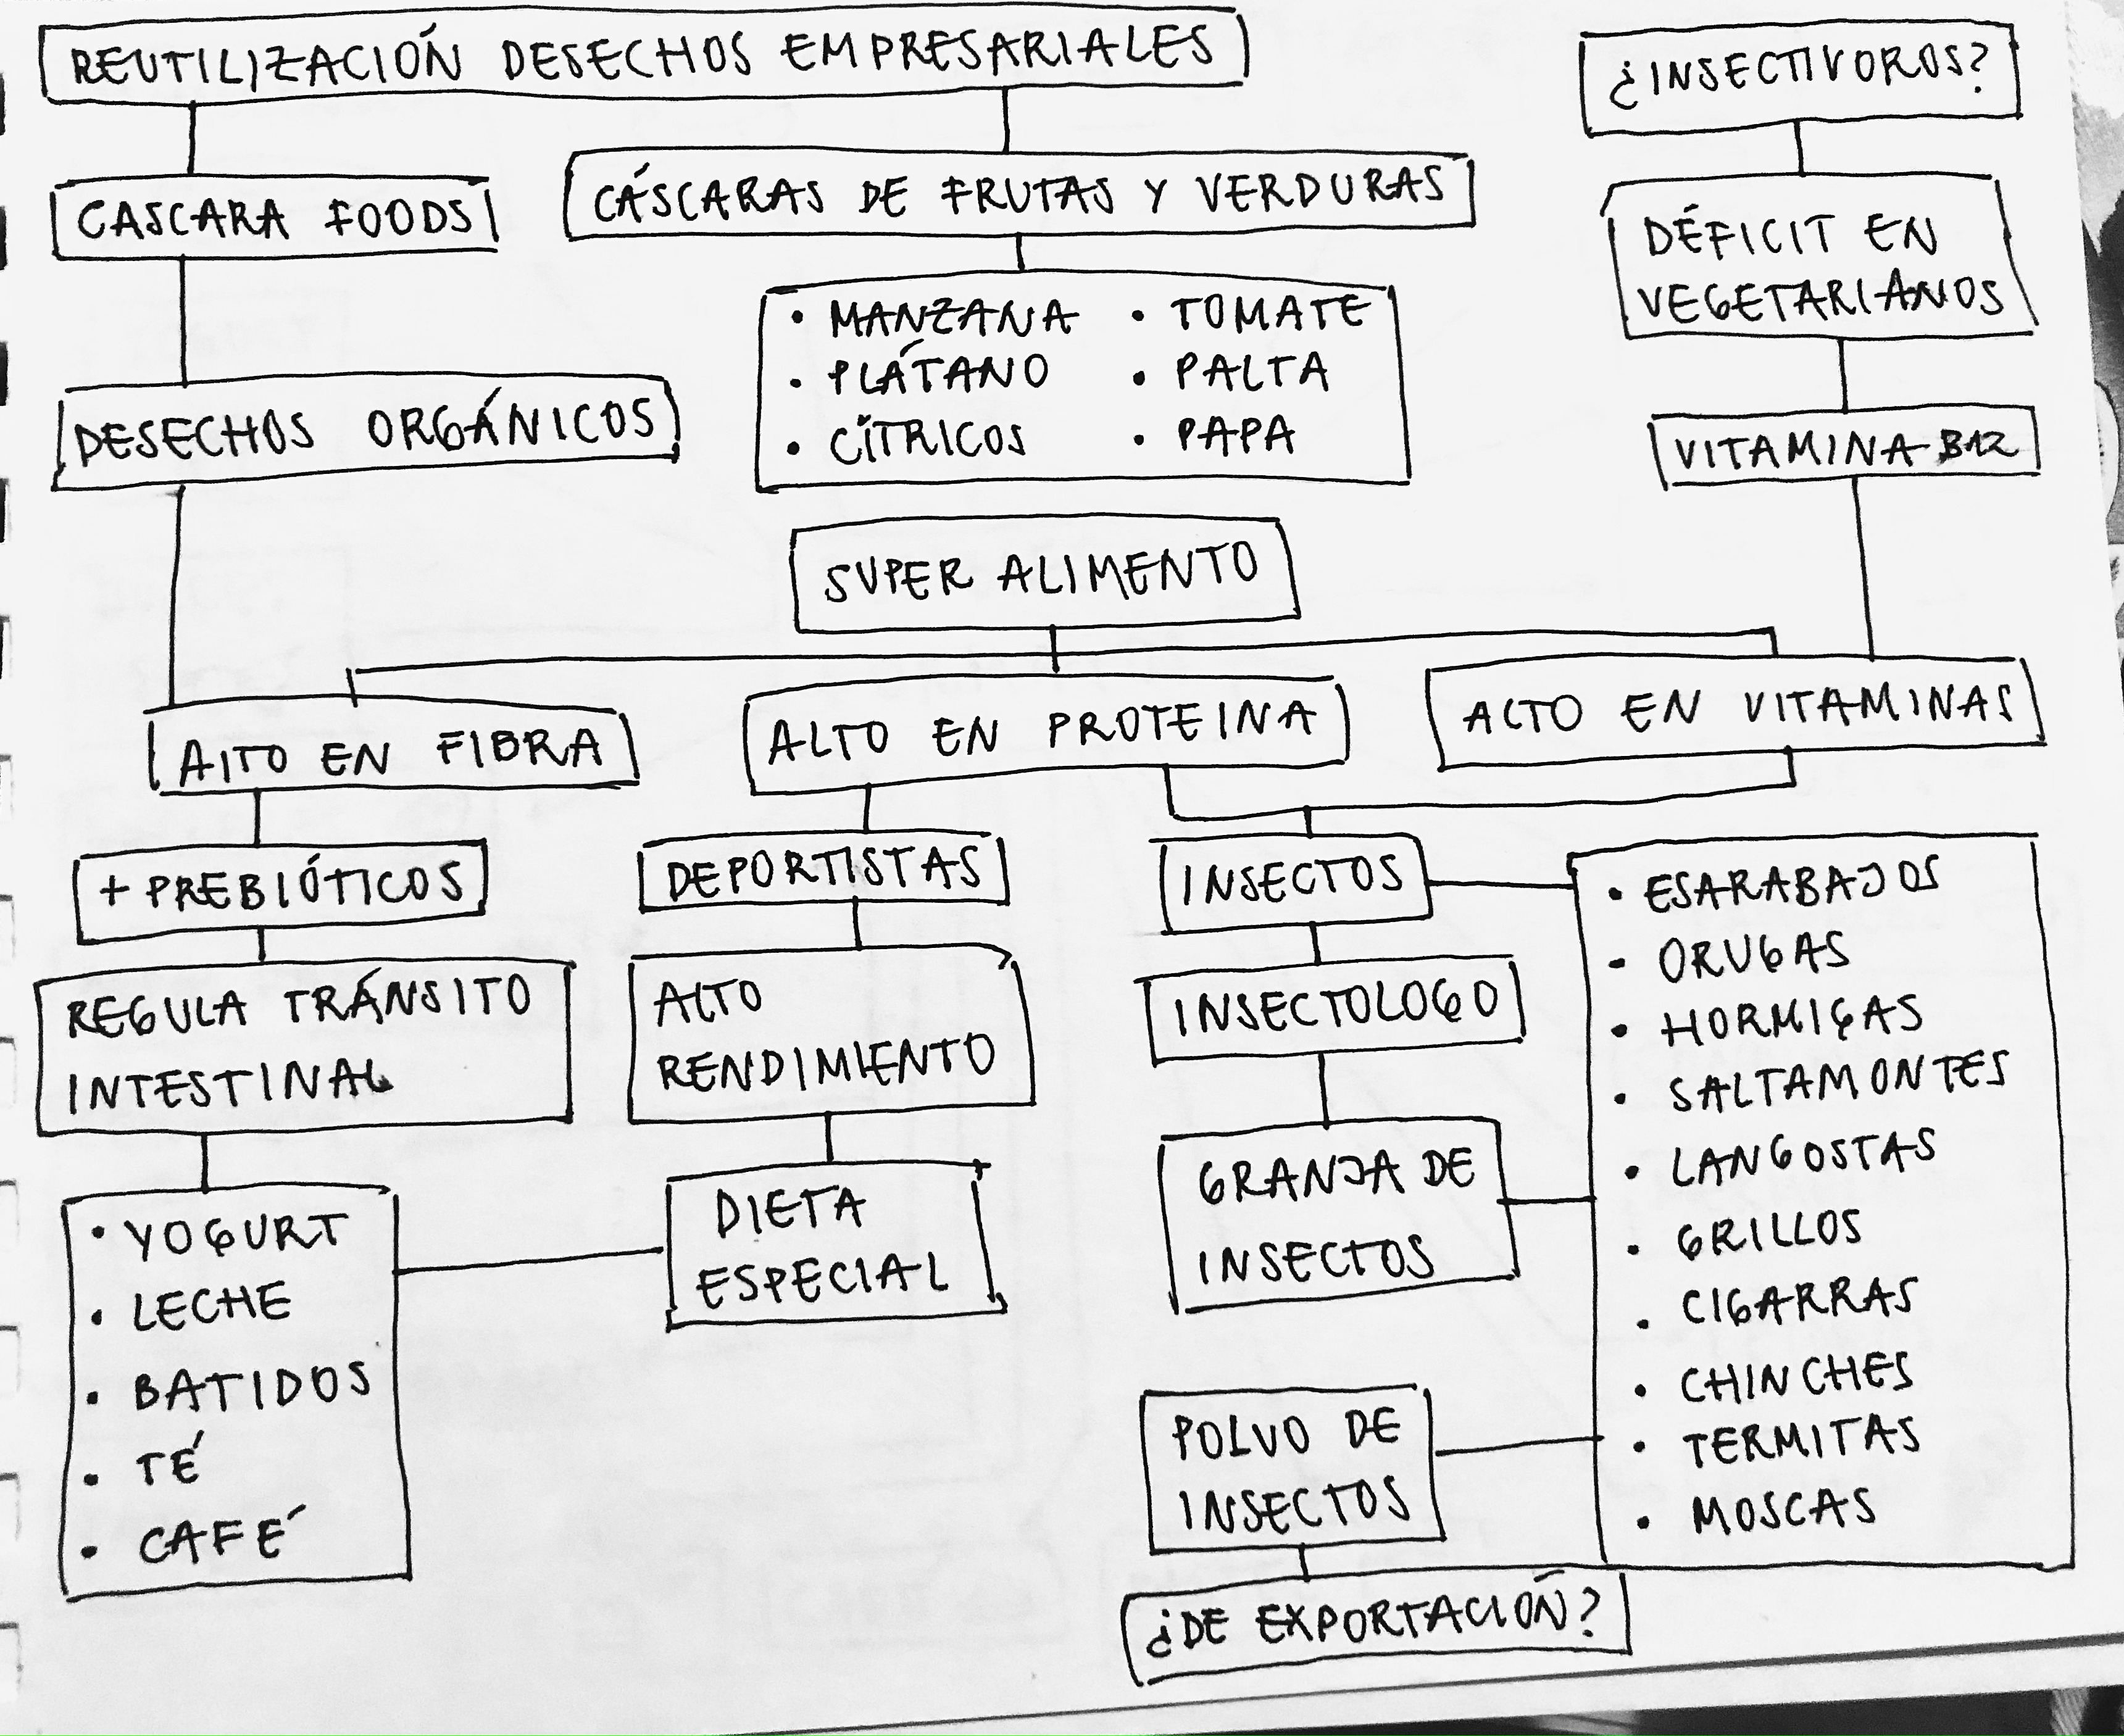 REUTILIZACIÓN DESECHOS EMPRESARIALES
¿INSECTIVOROS?
CASCARA FOODS
CÁSCARAS DE FRUTAS Y VERDURAS
DÉFICIT EN
VEGETARIANOS
• MANZANA • TOMATE
• PLÁTANO • PALTA
• CÍTRICOS • PAPA
DESECHOS ORGÁNICOS
VITAMINA B12
SUPER ALIMENTO
ALTO EN FIBRA
ALTO EN PROTEINA
ALTO EN VITAMINAS
+ PREBIÓTICOS
DEPORTISTAS
INSECTOS
REGULA TRÁNSITO
INTESTINAL
ALTO
RENDIMIENTO
INSECTOLOGO
GRANJA DE
INSECTOS
• ESARABAJOS
• ORUGAS
• HORMIGAS
• SALTAMONTES
• LANGOSTAS
• GRILLOS
• CIGARRAS
• CHINCHES
• TERMITAS
• MOSCAS
• YOGURT
• LECHE
• BATIDOS
• TÉ
• CAFÉ
DIETA
ESPECIAL
POLVO DE
INSECTOS
¿DE EXPORTACIÓN?